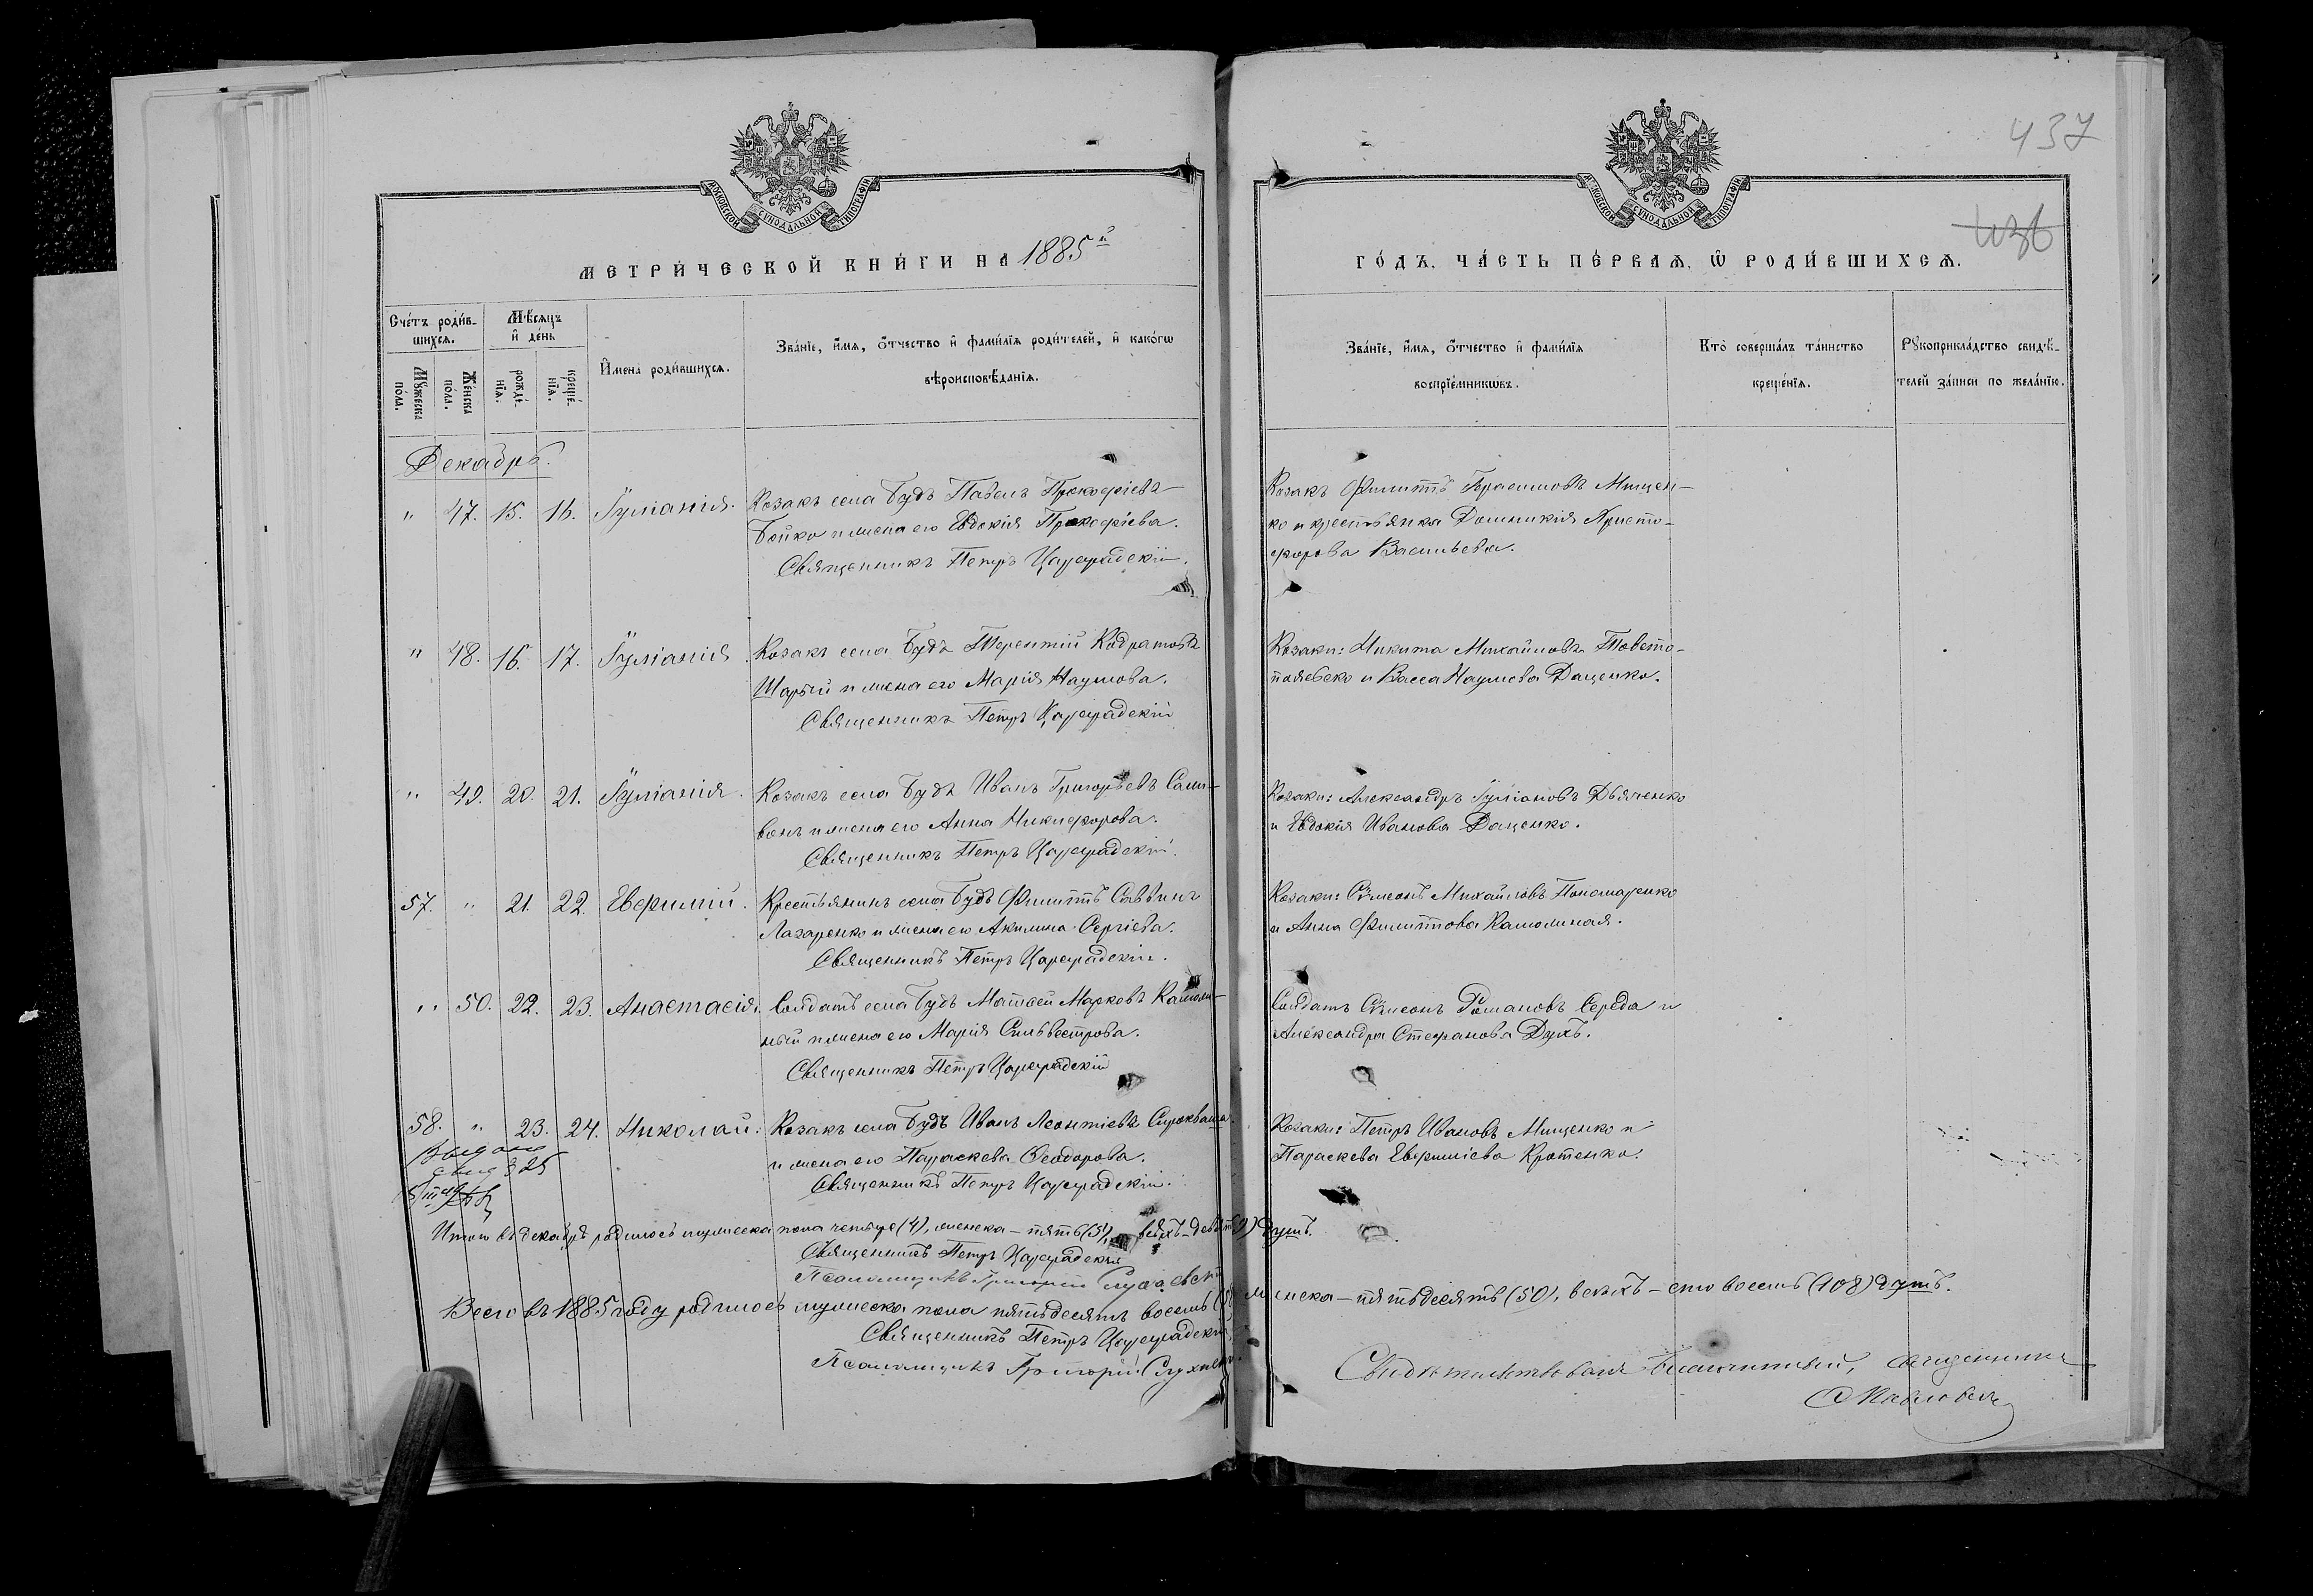 437
МОСКОВСКОЙ СУНОДАЛЬНОЙ ТИПОГРАФІИ
МОСКОВСКОЙ СУНОДАЛЬНОЙ ТИПОГРАФІИ
МЕТРИ́ЧЕСКОЙ КНИ́ГИ НА 1885й
ГО́ДЪ, ЧА́СТЬ ПЕ́РВАѦ, Ѡ РОДИ́ВШИХСѦ.
Сче́тъ роди́в-
шихсѧ.
Мꙋжеска по́ла.
Же́нска по́ла.
Мѣ́сѧцъ и де́нь
рожде́-нїѧ.
креще́-нїѧ.
И҆мена̀ роди́вшихсѧ.
Зва́нїе, и҆́мѧ, ѻ҆́тчество и҆ фами́лїѧ роди́телей, и҆ како́гѡ
вѣроисповѣ́данїѧ.
Зва́нїе, и҆́мѧ, ѻ҆́тчество и҆ фами́лїѧ
воспрїе́мникѡвъ.
Кто̀ соверша́лъ та́инство
креще́нїѧ.
Рꙋкоприкла́дство свидѣ́-
телей за́писи по жела́нїю.
Декабрь.
" 47. 15. 16. Іуліанія. Козакъ села Будъ Павелъ Прокофіевъ
Бойко и жена его Евдокія Прокофіева.
Священникъ Петръ Цареградскій.
Козакъ Филиппъ Герасимовъ Мищен-
ко и крестьянка Домникія Христо-
форова Васильева.
" 48. 16. 17. Іуліанія. Козакъ села Будъ Терентій Кодратовъ
Шарый и жена его Марія Наумова.
Священникъ Петръ Цареградскій
Козаки: Никита Михайловъ Товсто-
и Васса Наумова Даценко.
" 49. 20. 21. Іуліанія. Козакъ села Будъ Иванъ Григорьевъ Сали-
вонъ и жена его Анна Никифорова.
Священникъ Петръ Цареградскій.
Козаки: Александръ Іуліановъ Дьяченко
и Евдокія Иванова Даценко.
57. " 21. 22. Евфимій. Крестьянинъ села Будъ Филиппъ Саввинъ
Лазаренко и жена его Акилина Сергіева.
Священникъ Петръ Цареградскій.
Козаки: Сѵмеонъ Михайловъ Пономаренко
и Анна Филиппова
" 50. 22. 23. Анастасія. Солдатъ села Будъ Матѳей Марковъ
ный и жена его Марія Сильвестрова.
Священникъ Петръ Цареградскій
Солдатъ Сѵмеонъ Романовъ Середа и
Александра Стефанова Духъ.
58. " 23. 24. Николай. Козакъ села Будъ Иванъ Леонтіевъ Сыроквашъ
и жена его Параскева Ѳеодорова.
Священникъ Петръ Цареградскій.
Козаки: Петръ Ивановъ Мищенко и
Параскева Евфиміева Кротенко.
Итого въ декабрѣ родилось мужеска пола четыре (4), женска – пять (5), всѣхъ девять (9) душъ.
Священникъ Петръ Цареградскій
Псаломщикъ Григорій
Всего въ 1885 году родилось мужеска пола пятьдесятъ восемь (58) женска – пятьдесятъ (50), всѣхъ – сто восемь (108) душъ.
Священникъ Петръ Цареградскій
Псаломщикъ Григорій
Свидѣтельствовалъ Благочинный, священникъ